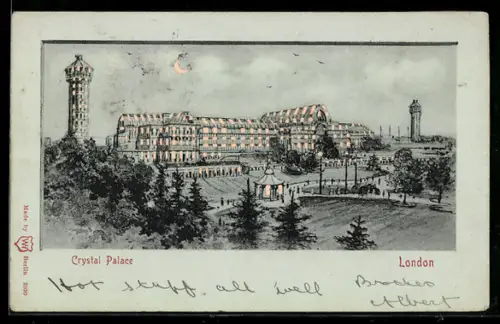 Crystal Palace
London
Made by W Berlin
Hot stuff. all well
Brother
Albert